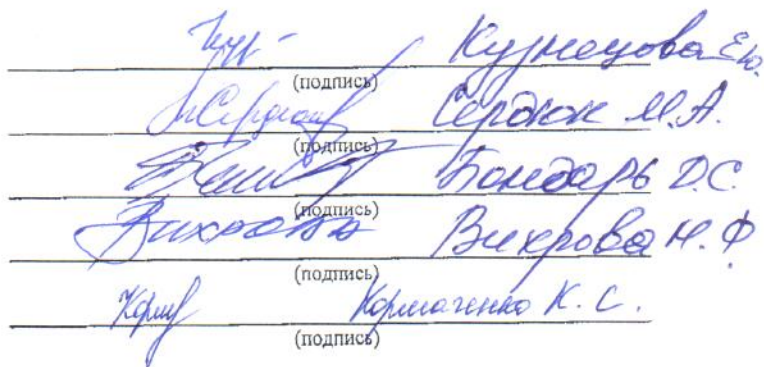 Кузнецова Е.Ю.
(подпись)
Сердюк М.А.
(подпись)
Бондарь D.C.
(подпись)
Вихрова Вихрова Н.Ф
(подпись)
Кормаченко К.С.
(подпись)